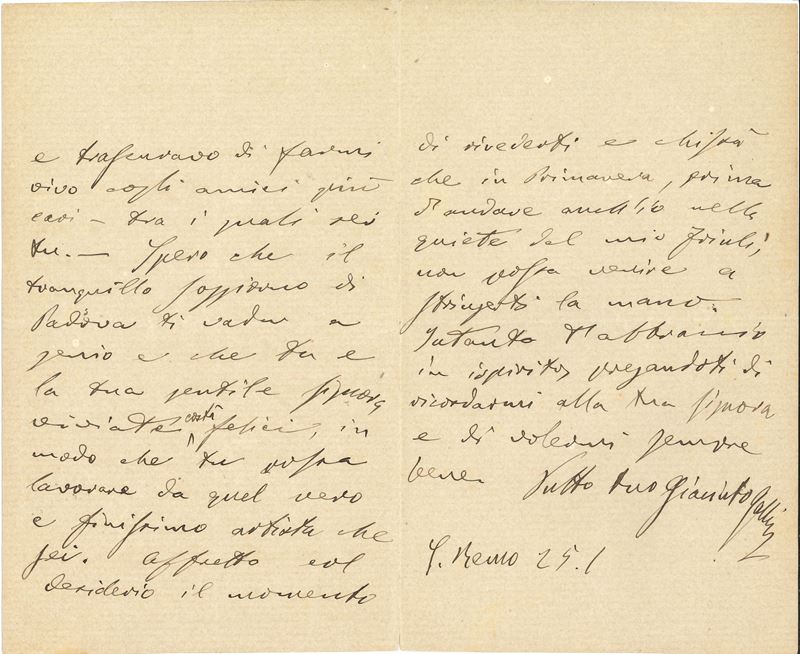 e trascuravo di farmi
vivo cogli amici più
cari – tra i quali sei
tu. — Spero che il
tranquillo soggiorno di
Padova ti vada a
genio e che tu e
la tua gentile signora
viviate costà felici, in
modo che tu possa
lavorare da quel vero
e finissimo artista che
sei. Affretto col
desiderio il momento
di rivederti e chissà
che in Primavera, prima
d'andare anch'io nella
quiete del mio Friuli,
non possa venire a
stringerti la mano.
Intanto t'abbraccio
in ispirito, pregandoti di
ricordarmi alla tua signora
e di volermi sempre
bene. Tutto tuo Giacinto
S. Remo 25.1